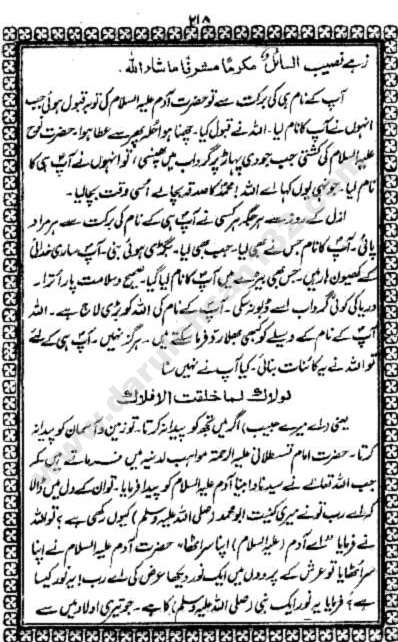 ۲۱۸
زہے نصیب السائل و مکرمًا مشرفًا ماشاء اللہ.
آپ کے نام ہی کی برکت سے تو حضرت آدم علیہ السلام کی توبہ قبول ہوئی جب
انہوں نے آپ کا نام لیا۔ اللہ نے قبول کیا۔ چھنا ہوا حُلّہ پھر سے عطا ہوا۔ حضرت نوح
علیہ السلام کی کشتی جب جودی پہاڑ پر گرداب میں پھنسی، تو انہوں نے آپ ہی کا
نام لیا۔ جونہی یوں کہا اے اللہ! محمدؐ کا صدقہ بچا لے اُسی وقت بچا لیا۔
ازل کے روز سے ہر جگہ ہر کسی نے آپ ہی کے نام کی برکت سے ہر مراد
پائی، آپ کا نام جس نے بھی لیا۔ جب بھی لیا۔ بگڑی ہوئی بنی۔ آپ ساری خدائی
کے کھیون ہار ہیں، جس بھی بیڑے میں آپ کا نام لیا گیا۔ صحیح و سلامت پار اُترا۔
دریا کی کوئی گرداب اسے ڈبو نہ سکی۔ آپ کے نام کی اللہ کو بڑی لاج ہے۔ اللہ
آپ کے نام کے وسیلے کو کبھی بھلا رد فرما سکتے ہیں۔ ہرگز نہیں۔ آپ ہی کے لئے
تو اللہ نے یہ کائنات بنائی۔ کیا آپ نے نہیں سنا
لولاک لما خلقت الافلاک
یعنی (اے میرے حبیب) اگر میں تجھ کو پیدا نہ کرتا۔ تو زمین و آسمان کو پیدا نہ
کرتا۔ حضرت امام قسطلانی علیہ الرحمۃ مواہب لدنیہ میں فرماتے ہیں کہ
جب اللہ تعالےٰ نے سیدنا و ابینا آدم علیہ السلام کو پیدا فرمایا۔ تو ان کے دل میں ڈالا
کہ اے رب تو نے میری کنیت ابو محمد (صلی اللہ علیہ وسلم) کیوں رکھی ہے؟ تو اللہ
نے فرمایا "اے آدم (علیہ السلام) اپنا سر اٹھا" حضرت آدم علیہ السلام نے اپنا
سر اٹھایا تو عرش کے پردوں میں ایک نور دیکھا عرض کی اے رب! یہ نور کیسا
ہے؟ فرمایا یہ نور ایک نبی (صلی اللہ علیہ وسلم) کا ہے۔ جو تیری اولاد میں سے